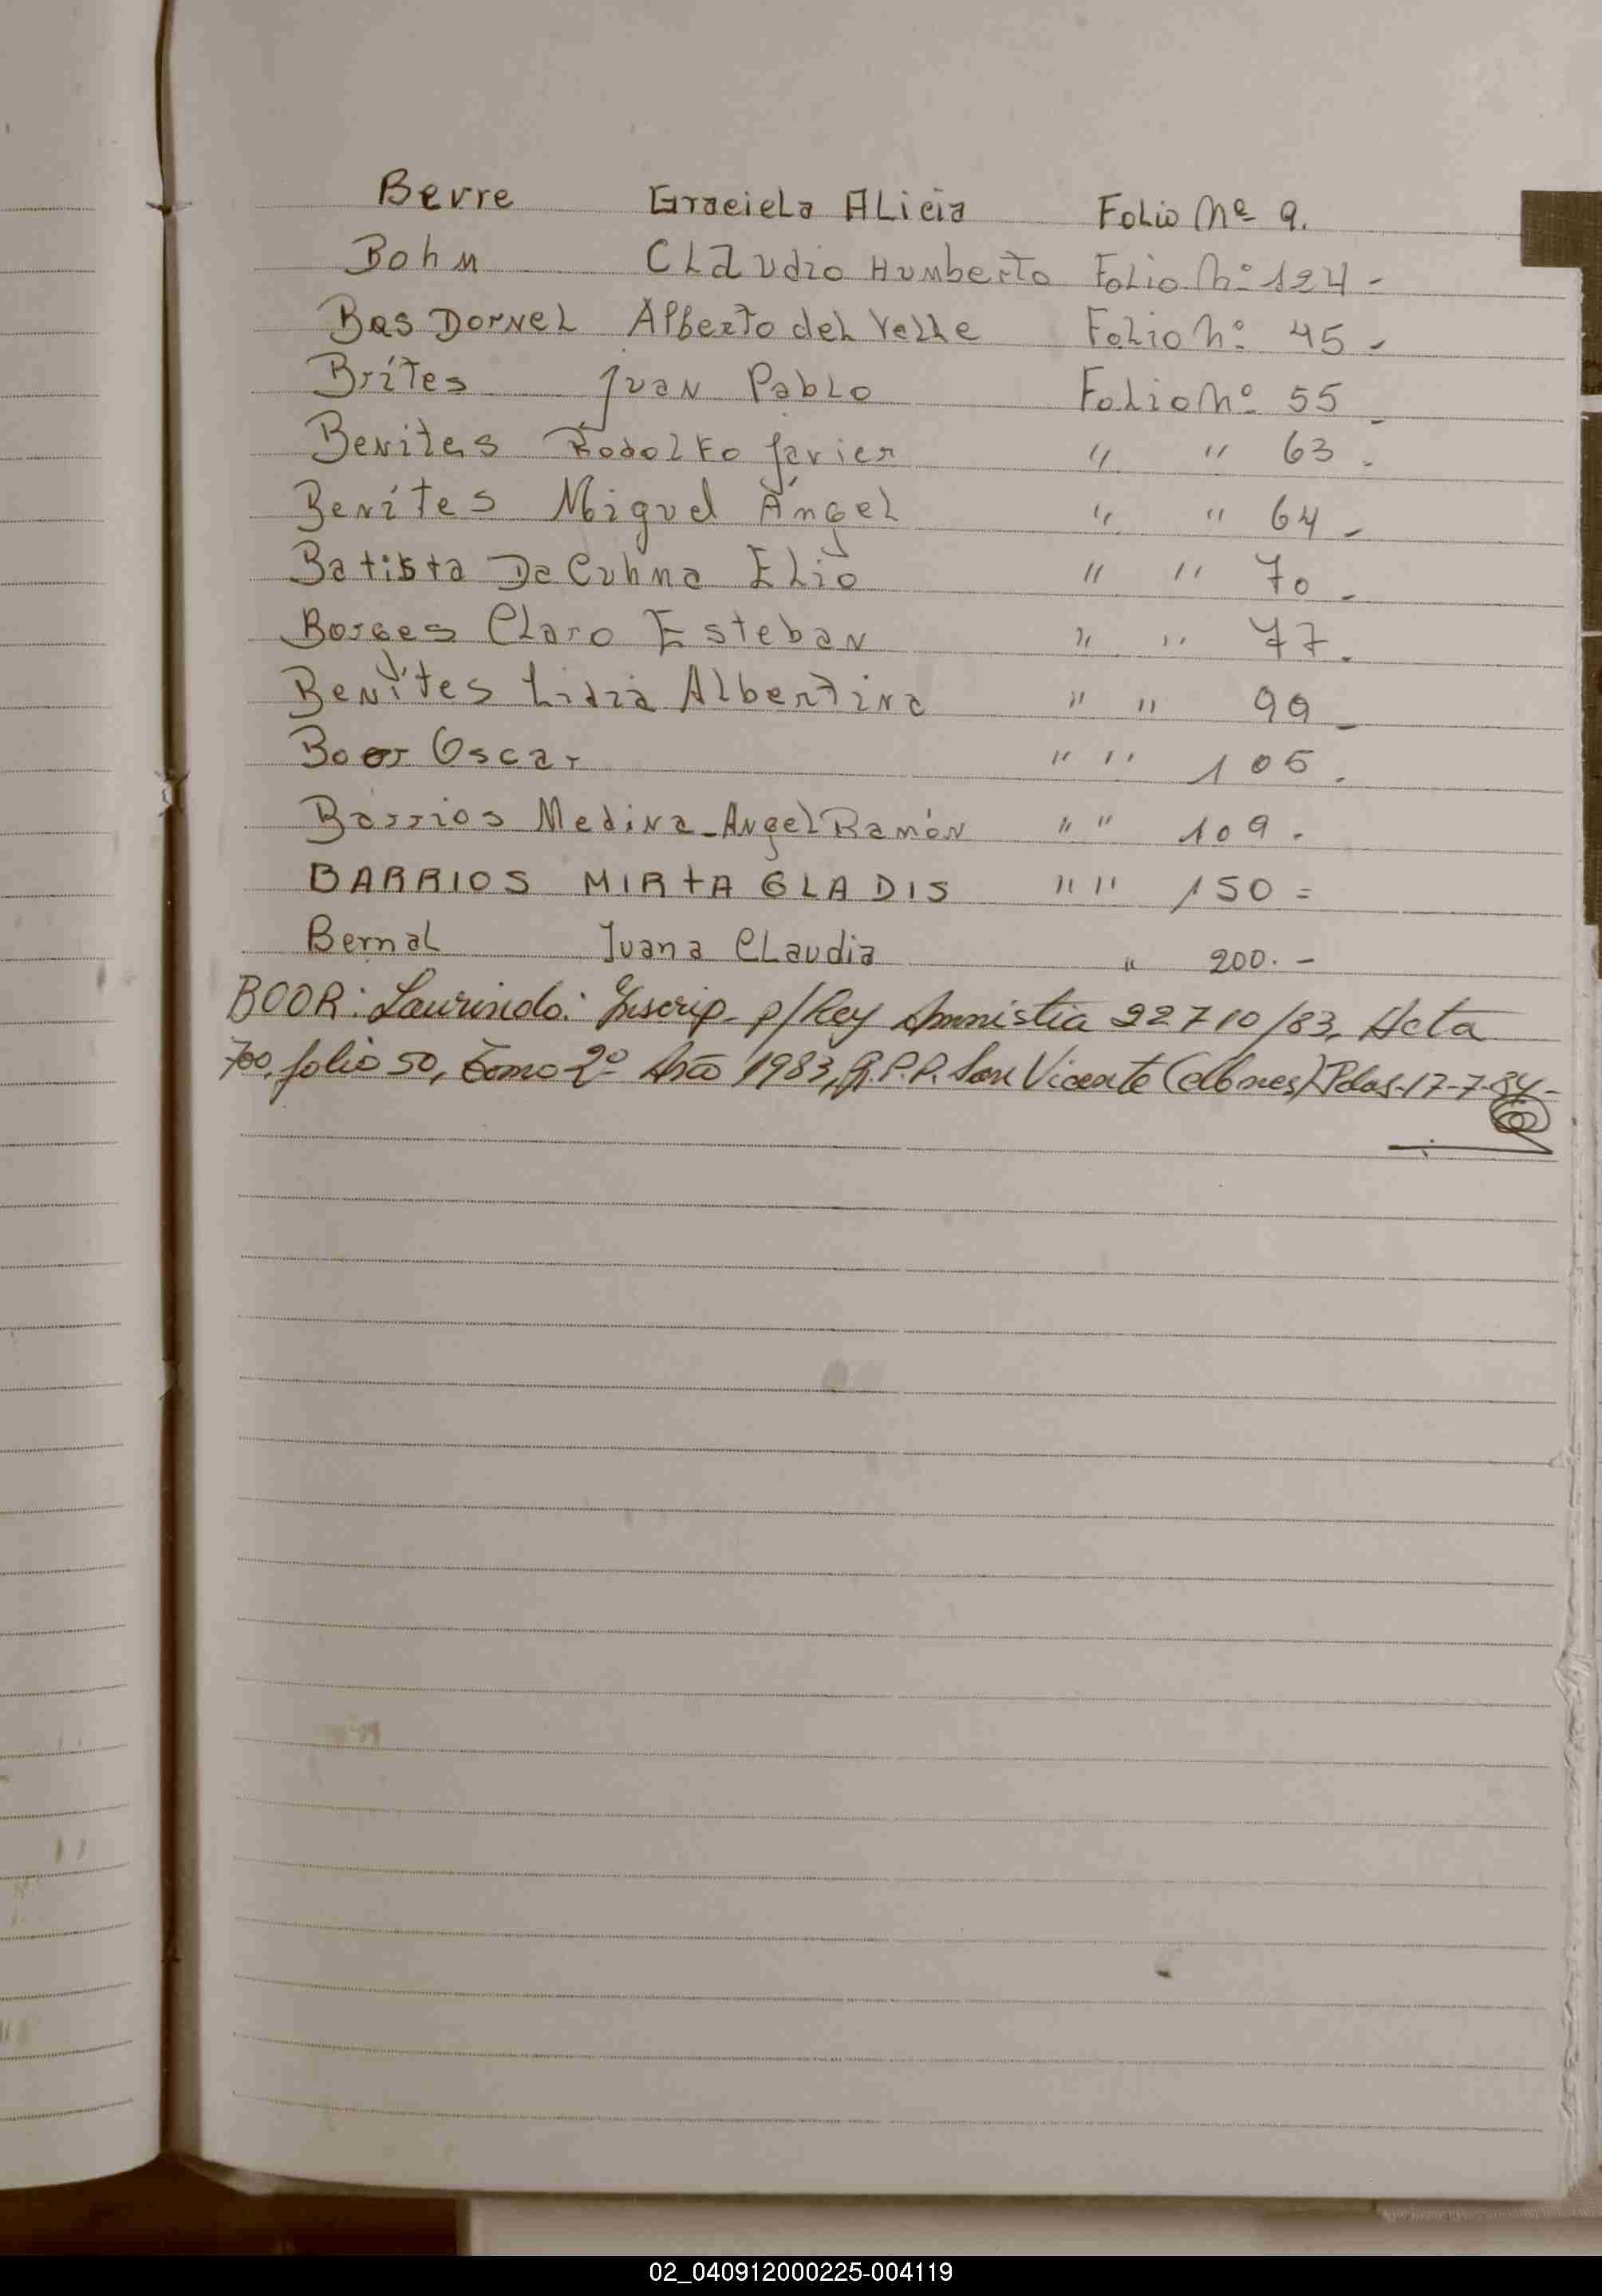 Berre Graciela Alicia Folio Nº 9.
Bohn Claudio Humberto Folio Nº 124-
Bas Dornel Alberto del Valle Folio Nº 45-
Brites Juan Pablo Folio Nº 55-
Benites Rodolfo Javier " " 63-
Benites Miguel Ángel " " 64-
Batista Da Cuhna Elio " " 70-
Borges Claro Esteban " " 77-
Benítes Lidia Albertina " " 99-
Boor Oscar " " 105.
Barrios Medina-Angel Ramón " " 109.
BARRIOS MIRtA GLADIS " " 150=
Bernal Juana Claudia " 200.-
BOOR: Laurindo: Inscrip. p/ley Amnistia 22710/83, Acta
700, folio 50, tomo 2º Año 1983, R.P.P. San Vicente (Mnes) Pdas-17-7-84-
02_040912000225-004119